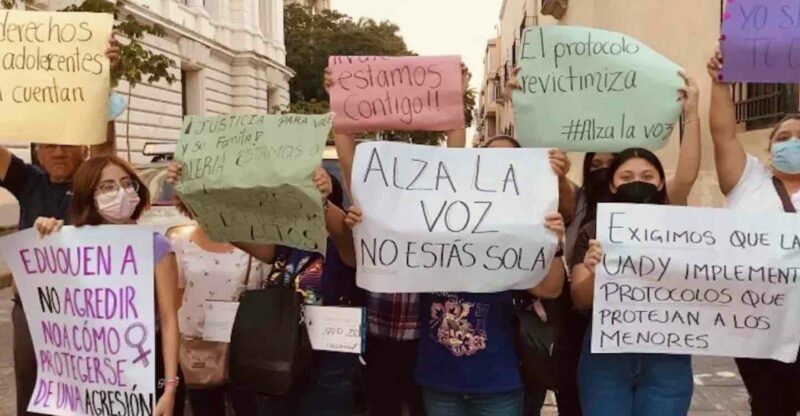 derechos
adolescentes
cuentan
¡JUSTICIA PARA
y su Familia!
ESTAMOS
estamos
contigo!!
El protocolo
revictimiza
#Alza la voz
YO SI
TE C
EDUQUEN A
NO AGREDIR
NO A CÓMO
PROTEGERSE
DE UNA AGRESIÓN
ALZA LA
VOZ
NO ESTÁS SOLA
EXIGIMOS QUE LA
UADY IMPLEMENT
PROTOCOLOS QUE
PROTEJAN A LOS
MENORES